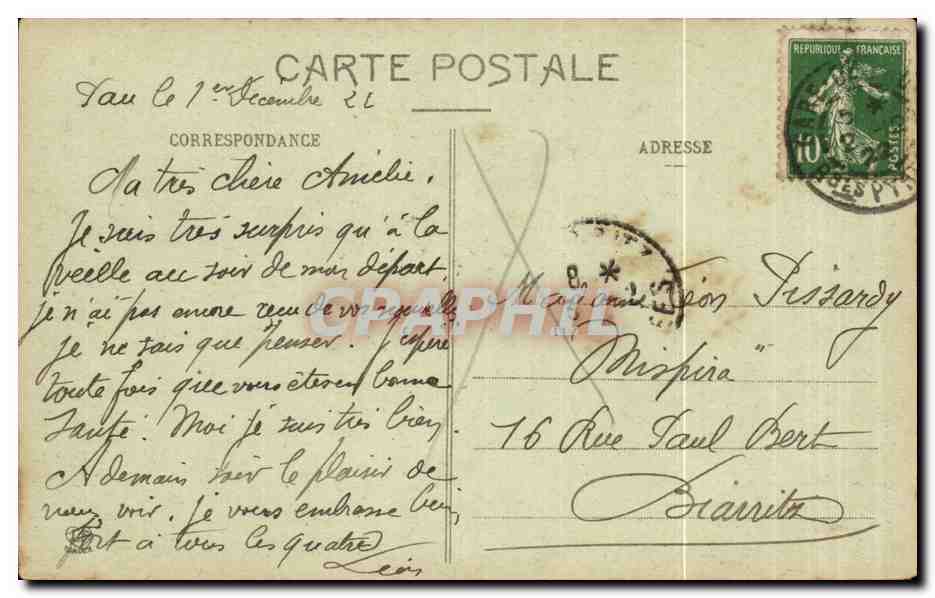 CARTE POSTALE
Pau le 1er Décembre 22
CORRESPONDANCE
ADRESSE
REPUBLIQUE FRANÇAISE
10
POSTES
Ma très chère Amélie.
Je suis très surpris qu'à la
veille au soir de mon départ,
je n'ai pas encore reçu de vos nouvelles
je ne sais que penser. J'espère
toute fois que vous êtes en bonne
santé. Moi je suis très bien,
A demain soir le plaisir de
nous voir. Je vous embrasse bien
fort à tous les quatre
Léon
Madame Léon Pissardy
"Mispira"
16 Rue Paul Bert
Biarritz
CPAPHIL